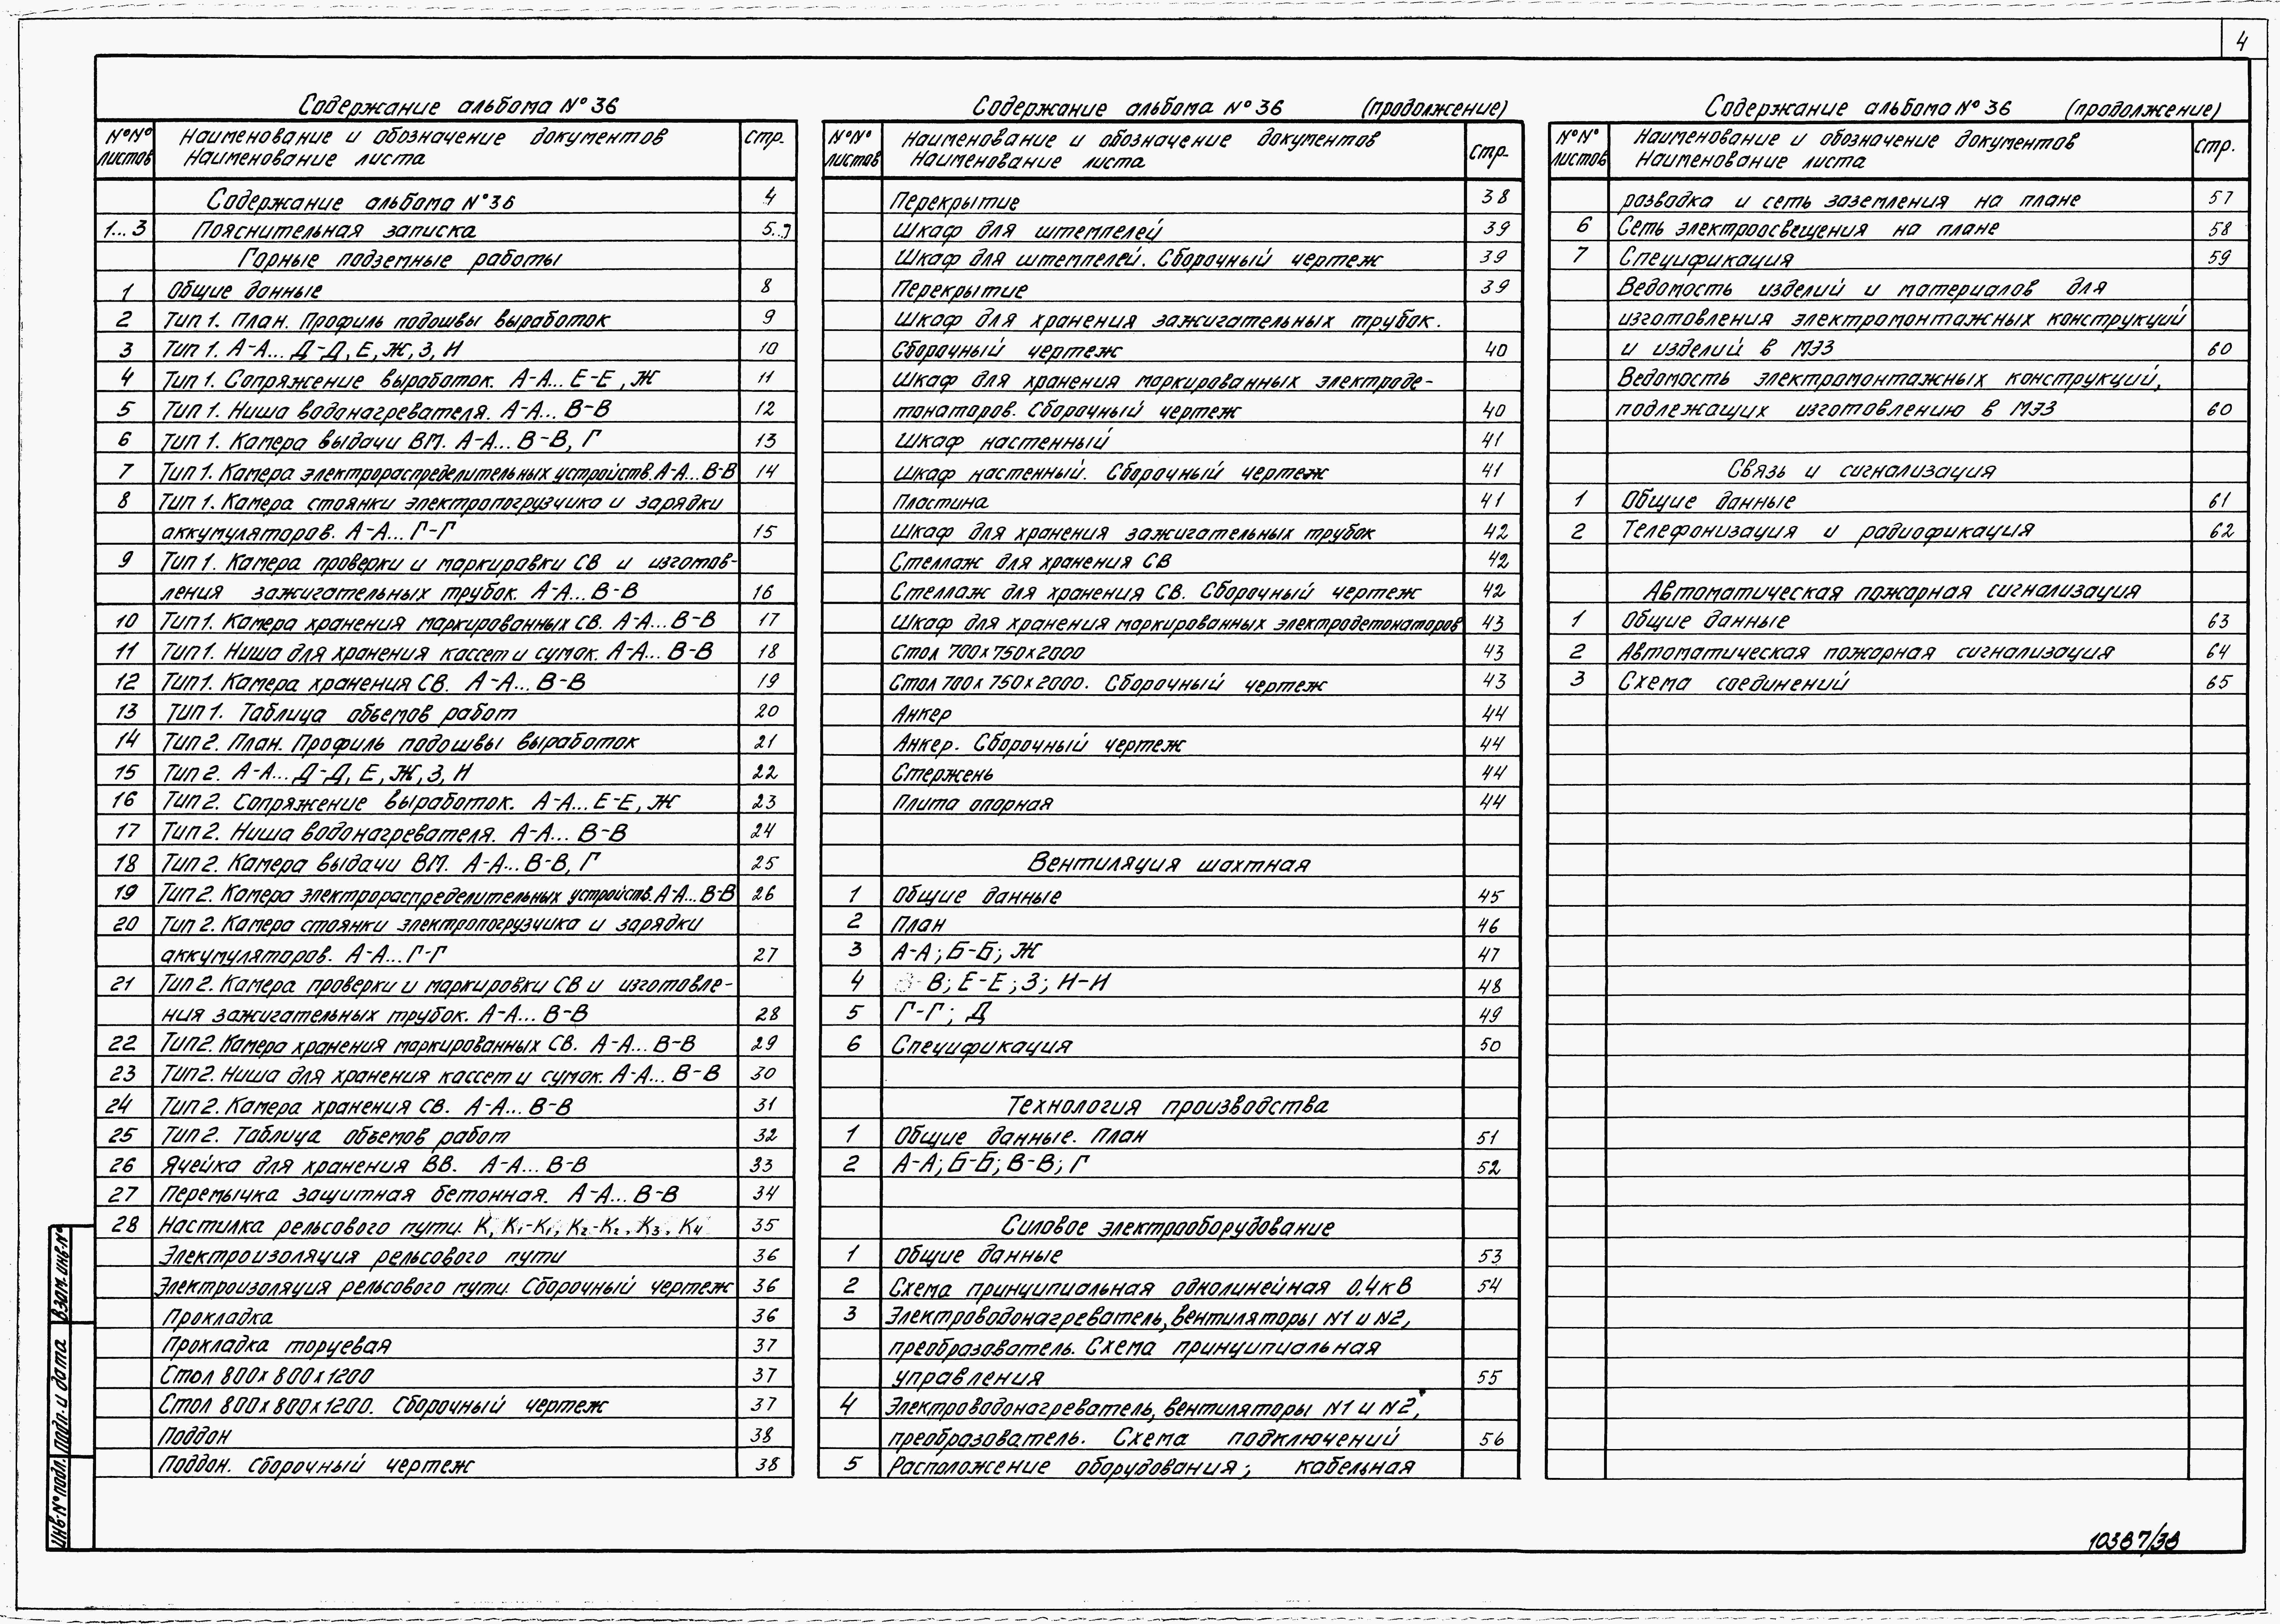 4
Содержание альбома №36
№№ листов Наименование и обозначение документов Наименование листа стр.
Содержание альбома №36 4
1...3 Пояснительная записка 5..7
Горные подземные работы
1 Общие данные 8
2 Тип 1. План. Профиль подошвы выработок 9
3 Тип 1. А-А... Д-Д, Е, Ж, З, И 10
4 Тип 1. Сопряжение выработок. А-А... Е-Е, Ж 11
5 Тип 1. Ниша водонагревателя. А-А... В-В 12
6 Тип 1. Камера выдачи ВМ. А-А... В-В, Г 13
7 Тип 1. Камера электрораспределительных устройств. А-А... В-В 14
8 Тип 1. Камера стоянки электропогрузчика и зарядки
аккумуляторов. А-А... Г-Г 15
9 Тип 1. Камера проверки и маркировки СВ и изготов-
ления зажигательных трубок. А-А... В-В 16
10 Тип 1. Камера хранения маркированных СВ. А-А... В-В 17
11 Тип 1. Ниша для хранения кассет и сумок. А-А... В-В 18
12 Тип 1. Камера хранения СВ. А-А... В-В 19
13 Тип 1. Таблица объемов работ 20
14 Тип 2. План. Профиль подошвы выработок 21
15 Тип 2. А-А... Д-Д, Е, Ж, З, И 22
16 Тип 2. Сопряжение выработок. А-А... Е-Е, Ж 23
17 Тип 2. Ниша водонагревателя. А-А... В-В 24
18 Тип 2. Камера выдачи ВМ. А-А... В-В, Г 25
19 Тип 2. Камера электрораспределительных устройств. А-А... В-В 26
20 Тип 2. Камера стоянки электропогрузчика и зарядки
аккумуляторов. А-А... Г-Г 27
21 Тип 2. Камера проверки и маркировки СВ и изготовле-
ния зажигательных трубок. А-А... В-В 28
22 Тип 2. Камера хранения маркированных СВ. А-А... В-В 29
23 Тип 2. Ниша для хранения кассет и сумок. А-А... В-В 30
24 Тип 2. Камера хранения СВ. А-А... В-В 31
25 Тип 2. Таблица объемов работ 32
26 Ячейка для хранения ВВ. А-А... В-В 33
27 Перемычка защитная бетонная. А-А... В-В 34
28 Настилка рельсового пути. К, К₁-К₁, К₂-К₂, К₃, К₄ 35
Электроизоляция рельсового пути 36
Электроизоляция рельсового пути. Сборочный чертеж 36
Прокладка 36
Прокладка торцевая 37
Стол 800х800х1200 37
Стол 800х800х1200. Сборочный чертеж 37
Поддон 38
Поддон. Сборочный чертеж 38
Содержание альбома №36 (продолжение)
№№ листов Наименование и обозначение документов Наименование листа стр.
Перекрытие 38
Шкаф для штемпелей 39
Шкаф для штемпелей. Сборочный чертеж 39
Перекрытие 39
Шкаф для хранения зажигательных трубок.
Сборочный чертеж 40
Шкаф для хранения маркированных электроде-
тонаторов. Сборочный чертеж 40
Шкаф настенный 41
Шкаф настенный. Сборочный чертеж 41
Пластина 41
Шкаф для хранения зажигательных трубок 42
Стеллаж для хранения СВ 42
Стеллаж для хранения СВ. Сборочный чертеж 42
Шкаф для хранения маркированных электродетонаторов 43
Стол 700х750х2000 43
Стол 700х750х2000. Сборочный чертеж 43
Анкер 44
Анкер. Сборочный чертеж 44
Стержень 44
Плита опорная 44
Вентиляция шахтная
1 Общие данные 45
2 План 46
3 А-А; Б-Б; Ж 47
4 В; Е-Е; З; И-И 48
5 Г-Г; Д 49
6 Спецификация 50
Технология производства
1 Общие данные. План 51
2 А-А; Б-Б; В-В; Г 52
Силовое электрооборудование
1 Общие данные 53
2 Схема принципиальная однолинейная 0,4кВ 54
3 Электроводонагреватель, вентиляторы N1 и N2,
преобразователь. Схема принципиальная
управления 55
4 Электроводонагреватель, вентиляторы N1 и N2,
преобразователь. Схема подключений 56
5 Расположение оборудования; кабельная
Содержание альбома №36 (продолжение)
№№ листов Наименование и обозначение документов Наименование листа стр.
разводка и сеть заземления на плане 57
6 Сеть электроосвещения на плане 58
7 Спецификация 59
Ведомость изделий и материалов для
изготовления электромонтажных конструкций
и изделий в МЭЗ 60
Ведомость электромонтажных конструкций,
подлежащих изготовлению в МЭЗ 60
Связь и сигнализация
1 Общие данные 61
2 Телефонизация и радиофикация 62
Автоматическая пожарная сигнализация
1 Общие данные 63
2 Автоматическая пожарная сигнализация 64
3 Схема соединений 65
Инв.№ подл. Подп. и дата Взам. инв.№
10387/38